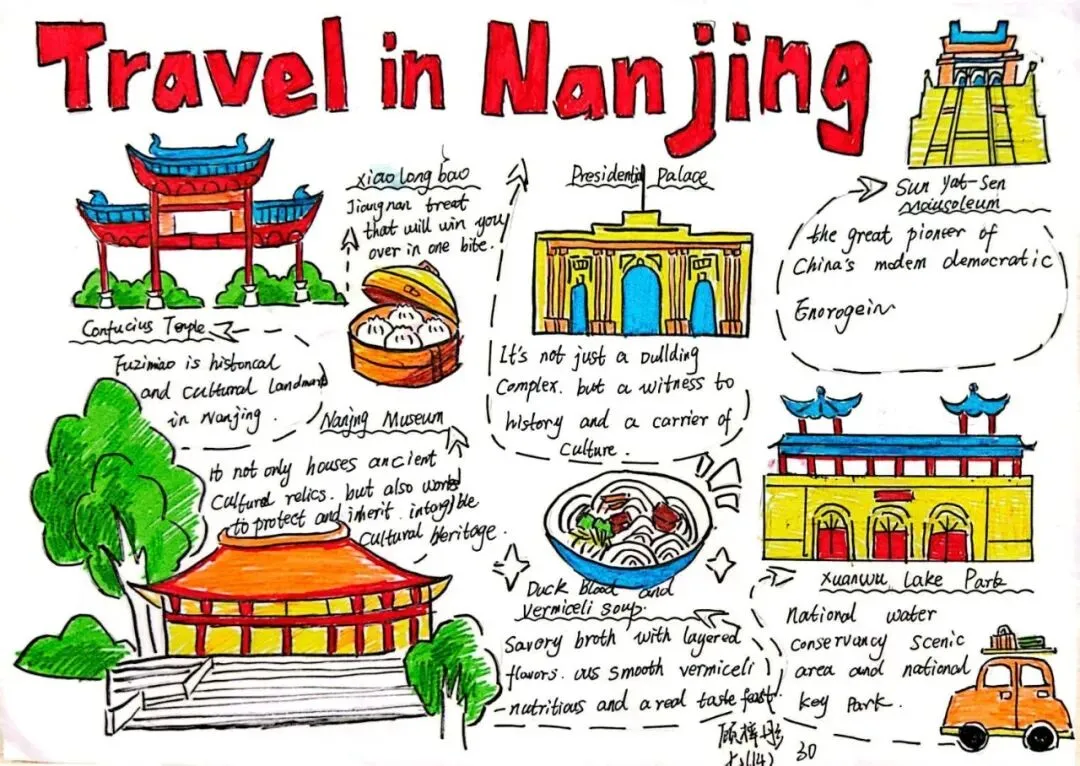 Travel in Nanjing
xiao long bao
Jiangnan treat
that will win you
over in one bite.
Presidential Palace
It's not just a
Complex. but a witness to
history and a carrier of
Culture.
Sun Yat-Sen
Mausoleum
the great pioneer of
China's modern democratic
Confucius Temple
Fuzimiao is historical
and cultural landmark
in Nanjing.
Nanjng Museum
not only houses ancient
Cultural relics. but also works
to protect and inherit. intangible
Cultural Heritage.
Duck Blood and
Vermiceli soup.
Savory broth with layered
flavors. smooth vermiceli
nutritious and a real taste feast
Xuanwu Lake Park
National water
conservancy scenic
area and national
key Park.
30